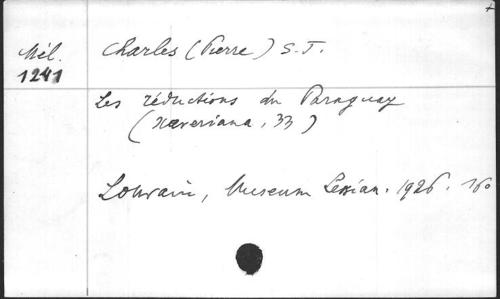 Mél.
1241
Charles (Pierre) S.J.
Les réductions du Paraguay
(Xaveriana, 33)
Louvain, Museum Lessian. 1926. 16o